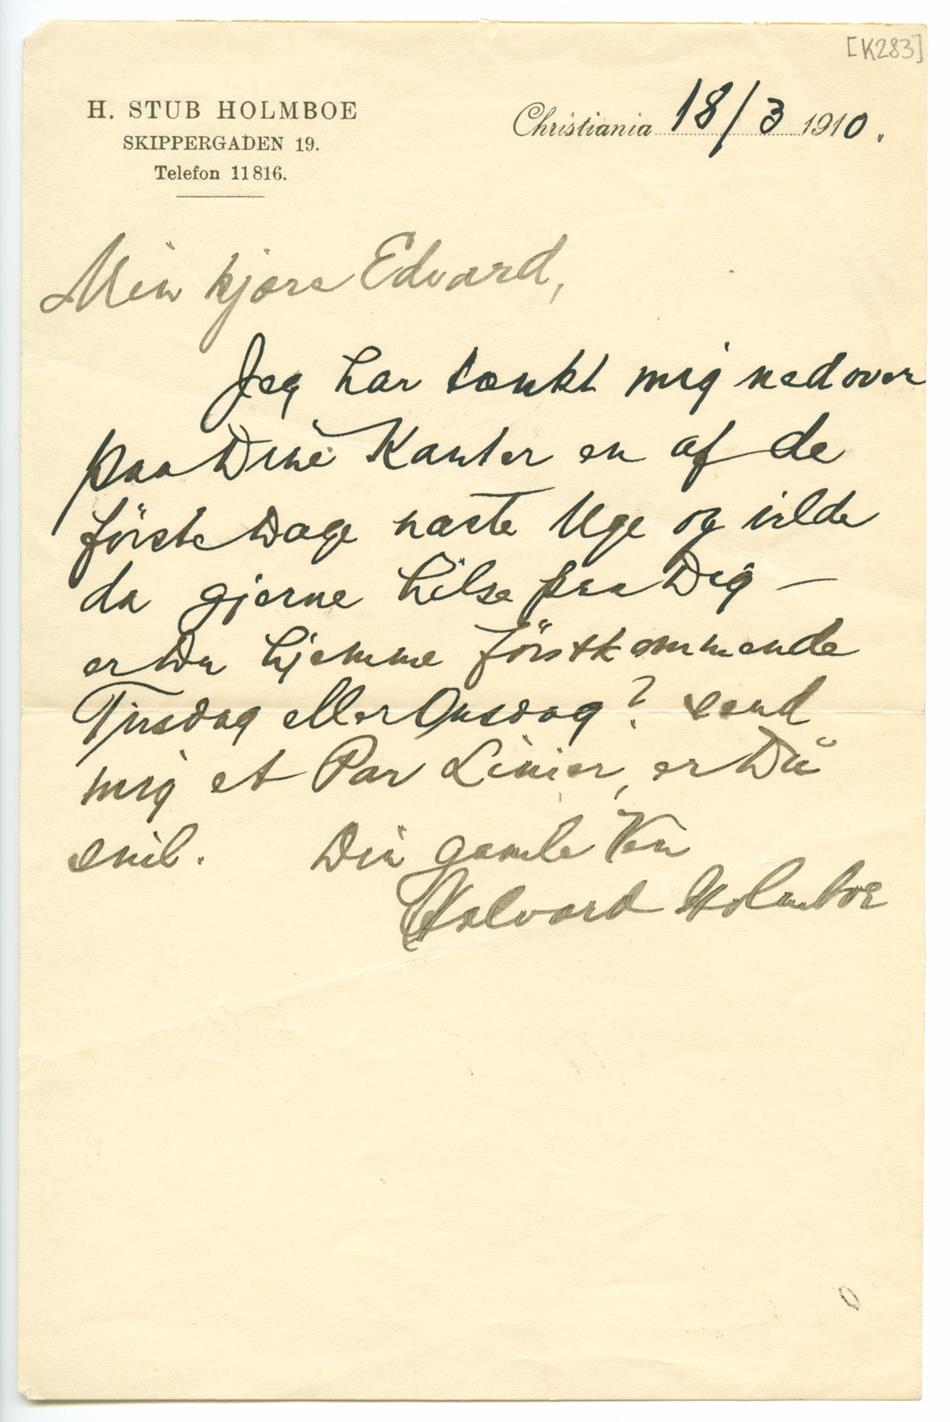 [K283]
H. STUB HOLMBOE
SKIPPERGADEN 19.
Telefon 11816.
Christiania 18/3 1910.
Min kjære Edvard,
Jeg har tænkt mig nedover
paa Dine Kanter en af de
förste Dage næste Uge og vilde
da gjerne hilse paa Dig –
er Du hjemme förstkommende
Tirsdag eller Onsdag? send
mig et Par Linier, er Du
snil. Din gamle Ven
Halvard Holmboe